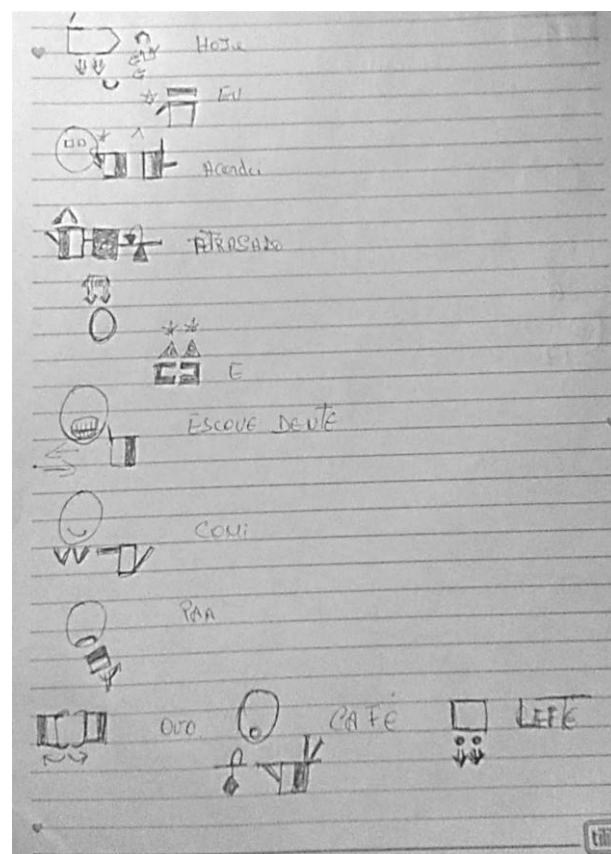 HOJE
EU
Acordei
ATRASADO
E
ESCOVE DENTE
COMI
PAA
OVO CAFÉ LEITE